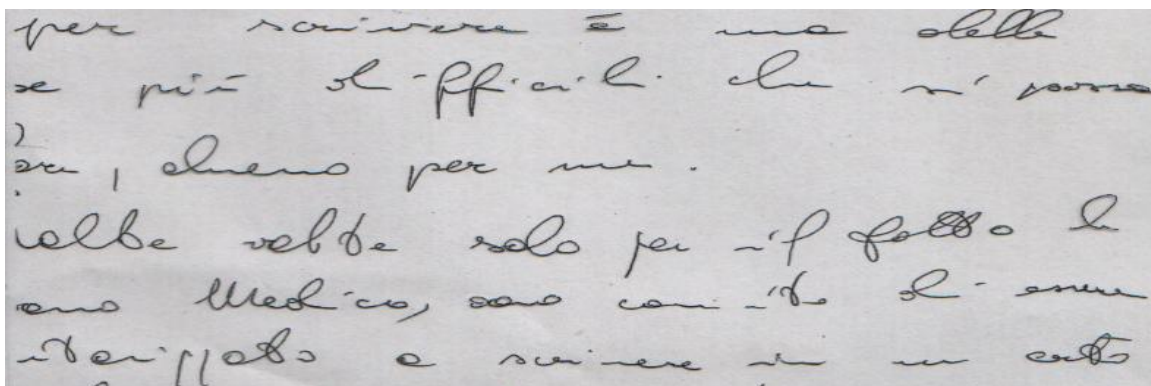 per scrivere è una delle
se più difficili che si possa
are, almeno per me.
volte volte solo per il fatto
ono Medico, sono convinto di essere
utorizzato a scrivere in un certo